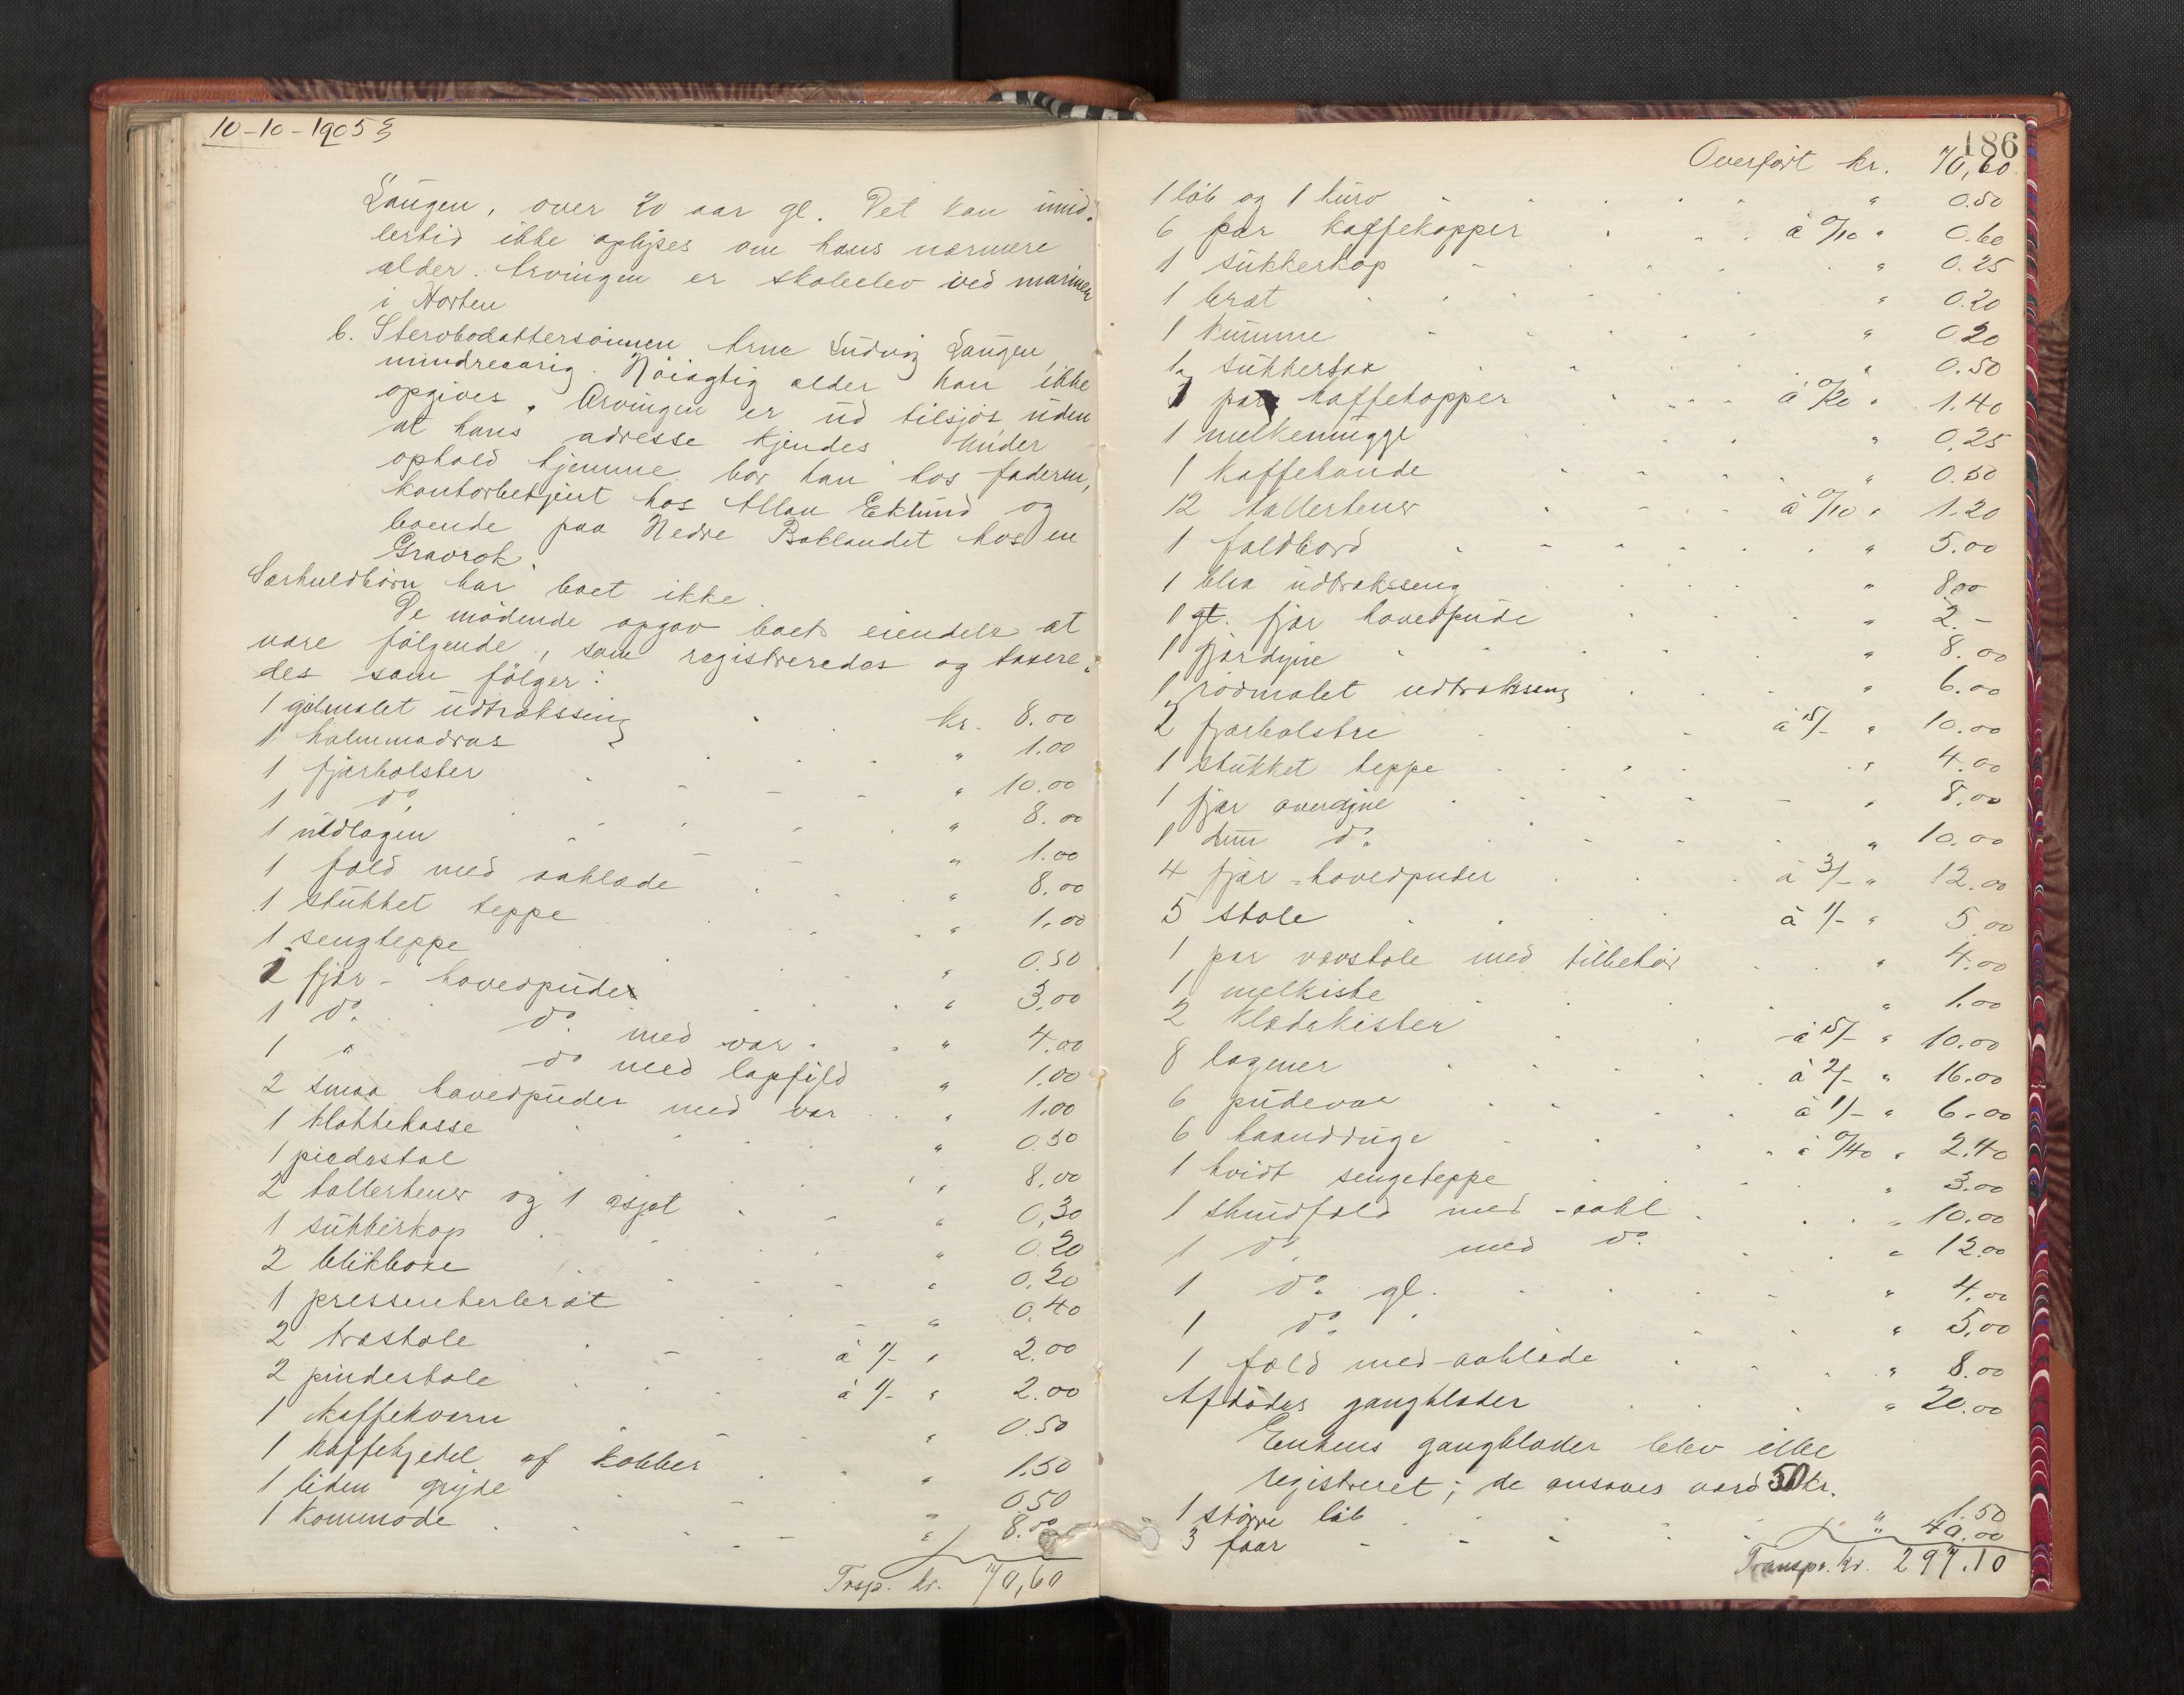 10-10-1905
Laugen, over 20 aar gl. Det kan imid-
lertid ikke oplyses om hans nærmere
alder. Arvingen er skoleelev ved marinen
i Horten
b. Stervbodattersønnen Arne Ludvig Laugen,
mindreaarig. Nøiagtig alder kan ikke
opgives. Arvingen er ud tilsjøs, uden
at hans adresse kjendes. Under
ophold hjemme bor han hos faderen,
kontorbetjent hos Allan Eklund og
boende paa Nedre Baklandet hos en
Gravrok.
Særkuldbørn har boet ikke.
De mødende opgav boets eiendele at
være følgende, som registreredes og takere-
des som følger:
1 gulmalet udtræksseng kr. 8.00
1 halmmadras " 1.00
1 fjærbolster " 10.00
1 do. " 8.00
1 uldlagen " 1.00
1 fæld med aaklæde " 8.00
1 stukket teppe " 1.00
1 sengteppe " 0.50
2 fjær-hovedpuder " 3.00
1 do. do. med var " 4.00
1 " do med lapfyld " 1.00
2 smaa hovedpuder med var " 1.00
1 klokkekasse " 0.50
1 piedestal " 8.00
2 tallerkener og 1 asjet " 0,30
1 sukkerkop " 0.20
2 blikboxe " 0.20
1 pressenterbræt " 0.40
2 træstole à 1/- " 2.00
2 pindestole à 1/- " 2.00
1 kaffekværn " 0.50
1 kaffekjedel af kobber " 1.50
1 liden gryde " 0.50
1 kommode " 8.00
Trsp. kr. 70,60
186
Overført kr. 70,60
1 løb og 1 kurv " 0.50
6 par kaffekopper à 0/10 " 0.60
1 sukkerkop " 0.25
1 bræt " 0.20
1 kumme " 0 20
1 sukkersax " 0.50
7 par kaffekopper à 0/20 " 1.40
1 melkemugge " 0,25
1 kaffekande " 0.50
12 tallerkener à 0/10 " 1.20
1 foldbord " 5.00
1 blaa udtrækseng " 8.00
1 gl. fjær hovedpude " 2.-
1 fjærdyne " 8.00
1 rødmalet udtrækseng " 6.00
2 fjærbolstre à 5/- " 10.00
1 stukket teppe " 4.00
1 fjær overdyne " 8.00
1 dun do. " 10.00
4 fjær-hovedpuder à 3/- " 12.00
5 stole à 1/- " 5.00
1 par vævstole med tilbehør " 4.00
1 melkiste " 1.00
2 klædekister à 5/- " 10.00
8 lagener à 2/- " 16.00
6 pudevar à 1/- " 6.00
6 haandduge à 0/40 " 2.40
1 hvidt sengeteppe " 3.00
1 skindfæld med aakl. " 10.00
1 do. med do. " 12.00
1 do. gl. " 4.00
1 do. " 5.00
1 fæld med aaklæde " 8.00
Afdødes gangklæder " 20.00
Enkens gangklæder blev ikke
registreret; de ansaaes værd 50 kr.
1 større løb " 1.50
3 faar " 40.00
Transp. kr. 297.10